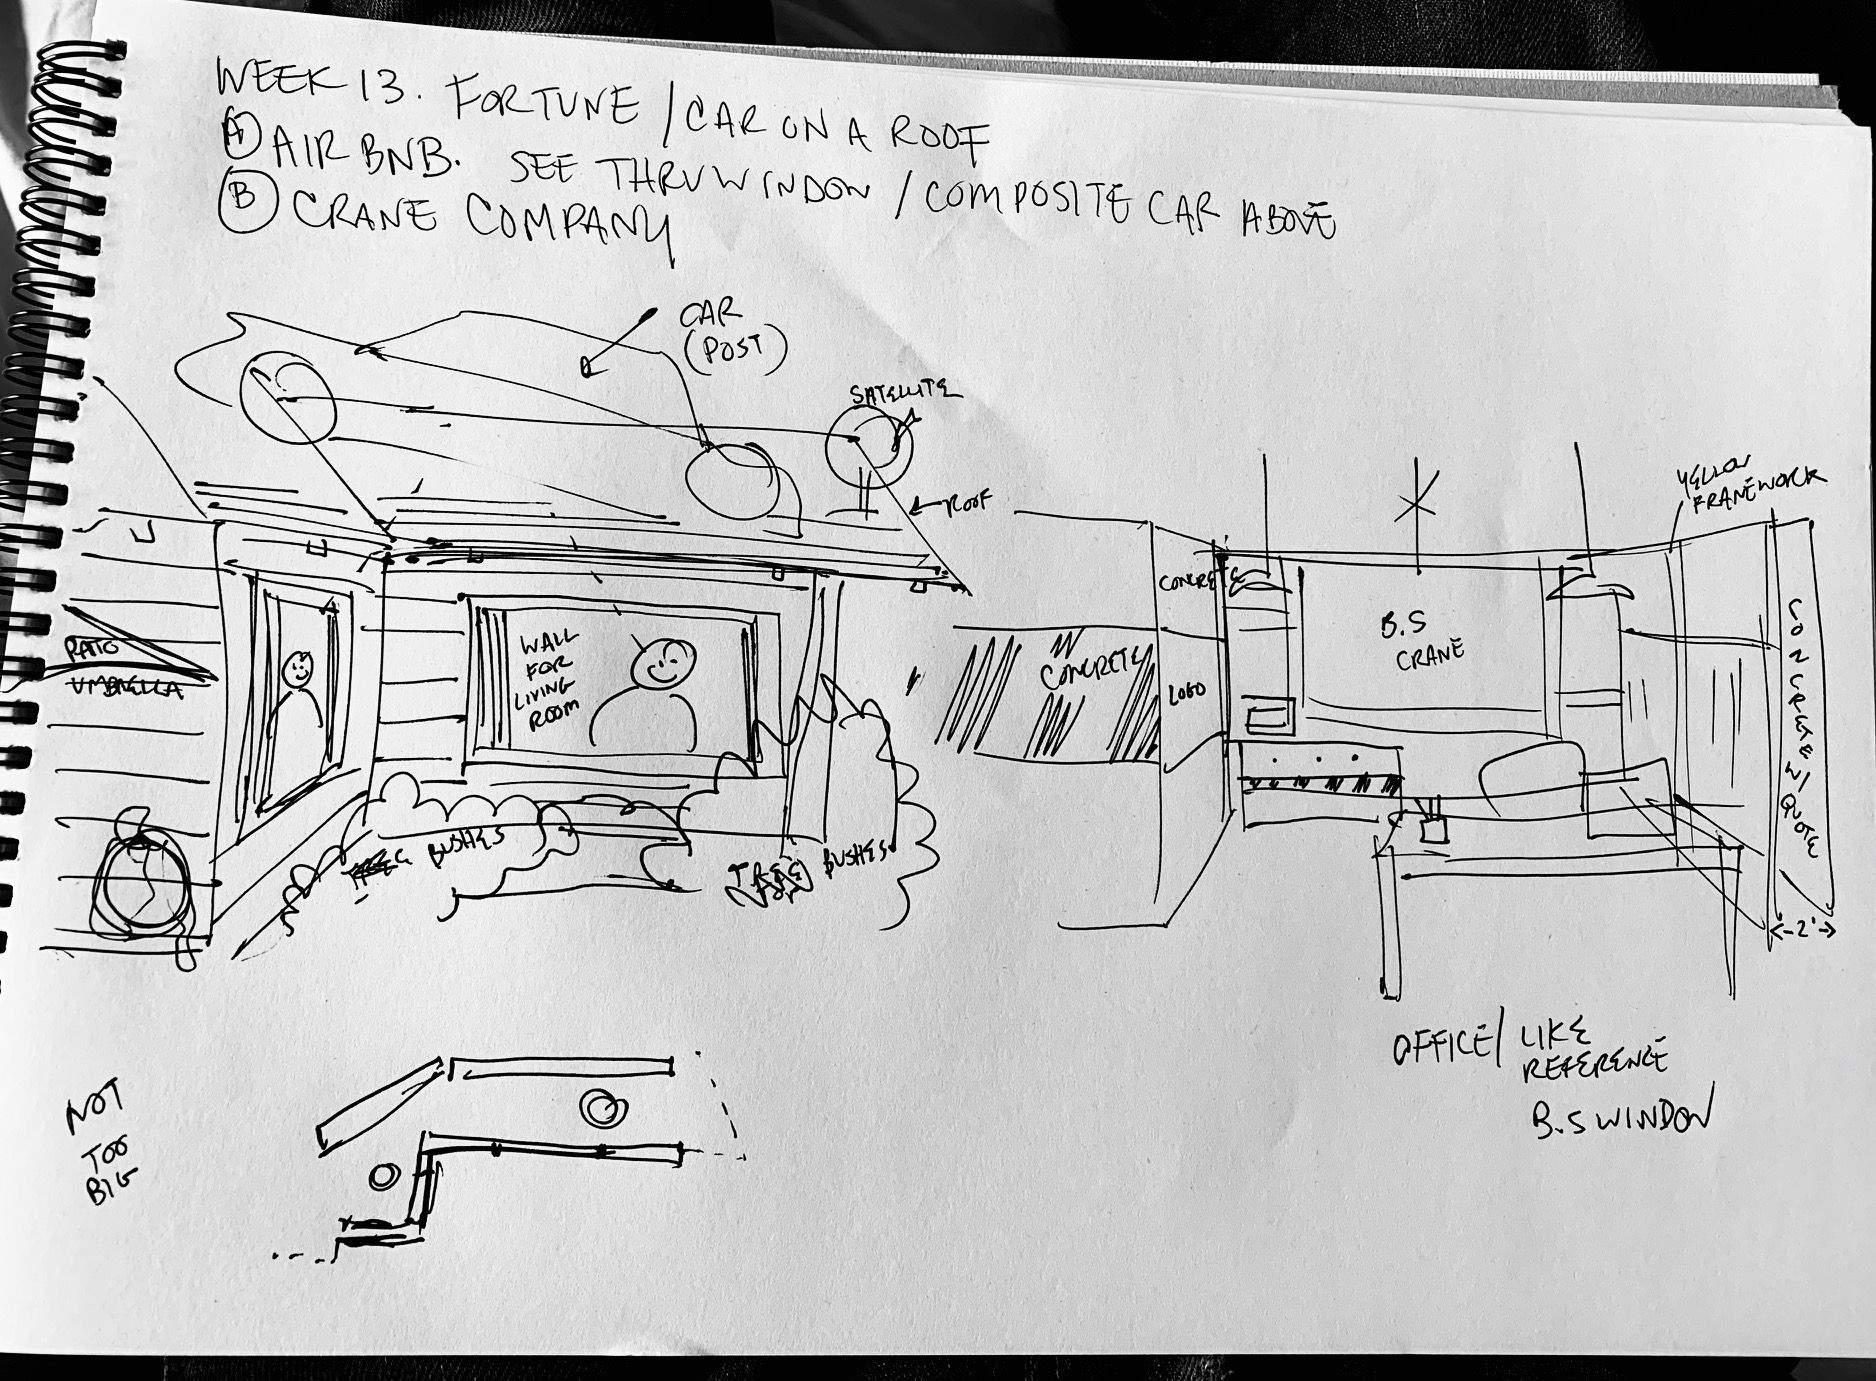 WEEK 13. FORTUNE / CAR ON A ROOF
Ⓐ AIR BNB. SEE THRU WINDOW / COMPOSITE CAR ABOVE
Ⓑ CRANE COMPANY
CAR
(POST)
SATELLITE
ROOF
PATIO
UMBRELLA
WALL
FOR
LIVING
ROOM
BUSHES
BUSHES
YELLOW
FRAMEWORK
CONCRETE
CONCRETE
LOGO
B.S
CRANE
CONCRETE W/ QUOTE
2'
OFFICE / LIKE
REFERENCE
B.S WINDOW
NOT
TOO
BIG